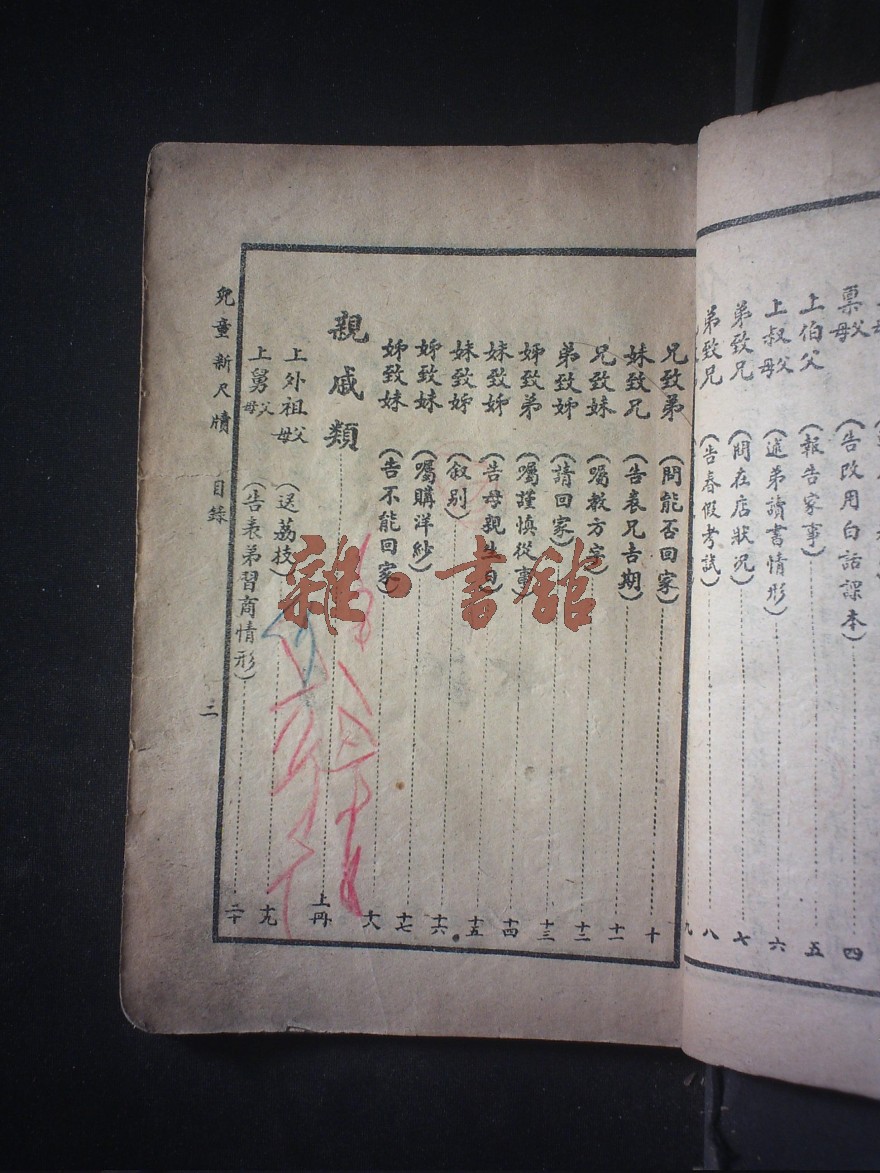 稟父母
上伯父 (報告家事) 五
(告改用白話課本) 四
上叔父母 (述弟讀書情形) 六
弟致兄 (問在店狀況) 七
弟致兄 (告春假考試) 八
九
兄致弟 (問能否回家) 十
妹致兄 (告表兄吉期) 十一
兄致妹 (囑教方字) 十二
弟致姊 (請回家) 十三
姊致弟 (囑謹慎從事) 十四
妹致姊 (告母親生日) 十五
妹致姊 (叙別) 十六
姊致妹 (囑購洋紗) 十七
姊致妹 (告不能回家) 十八
親戚類 上冊
上外祖父母 (送荔枝) 十九
上舅父母 (告表弟習商情形) 二十
兒童新尺牘 目錄 二
雜·書館